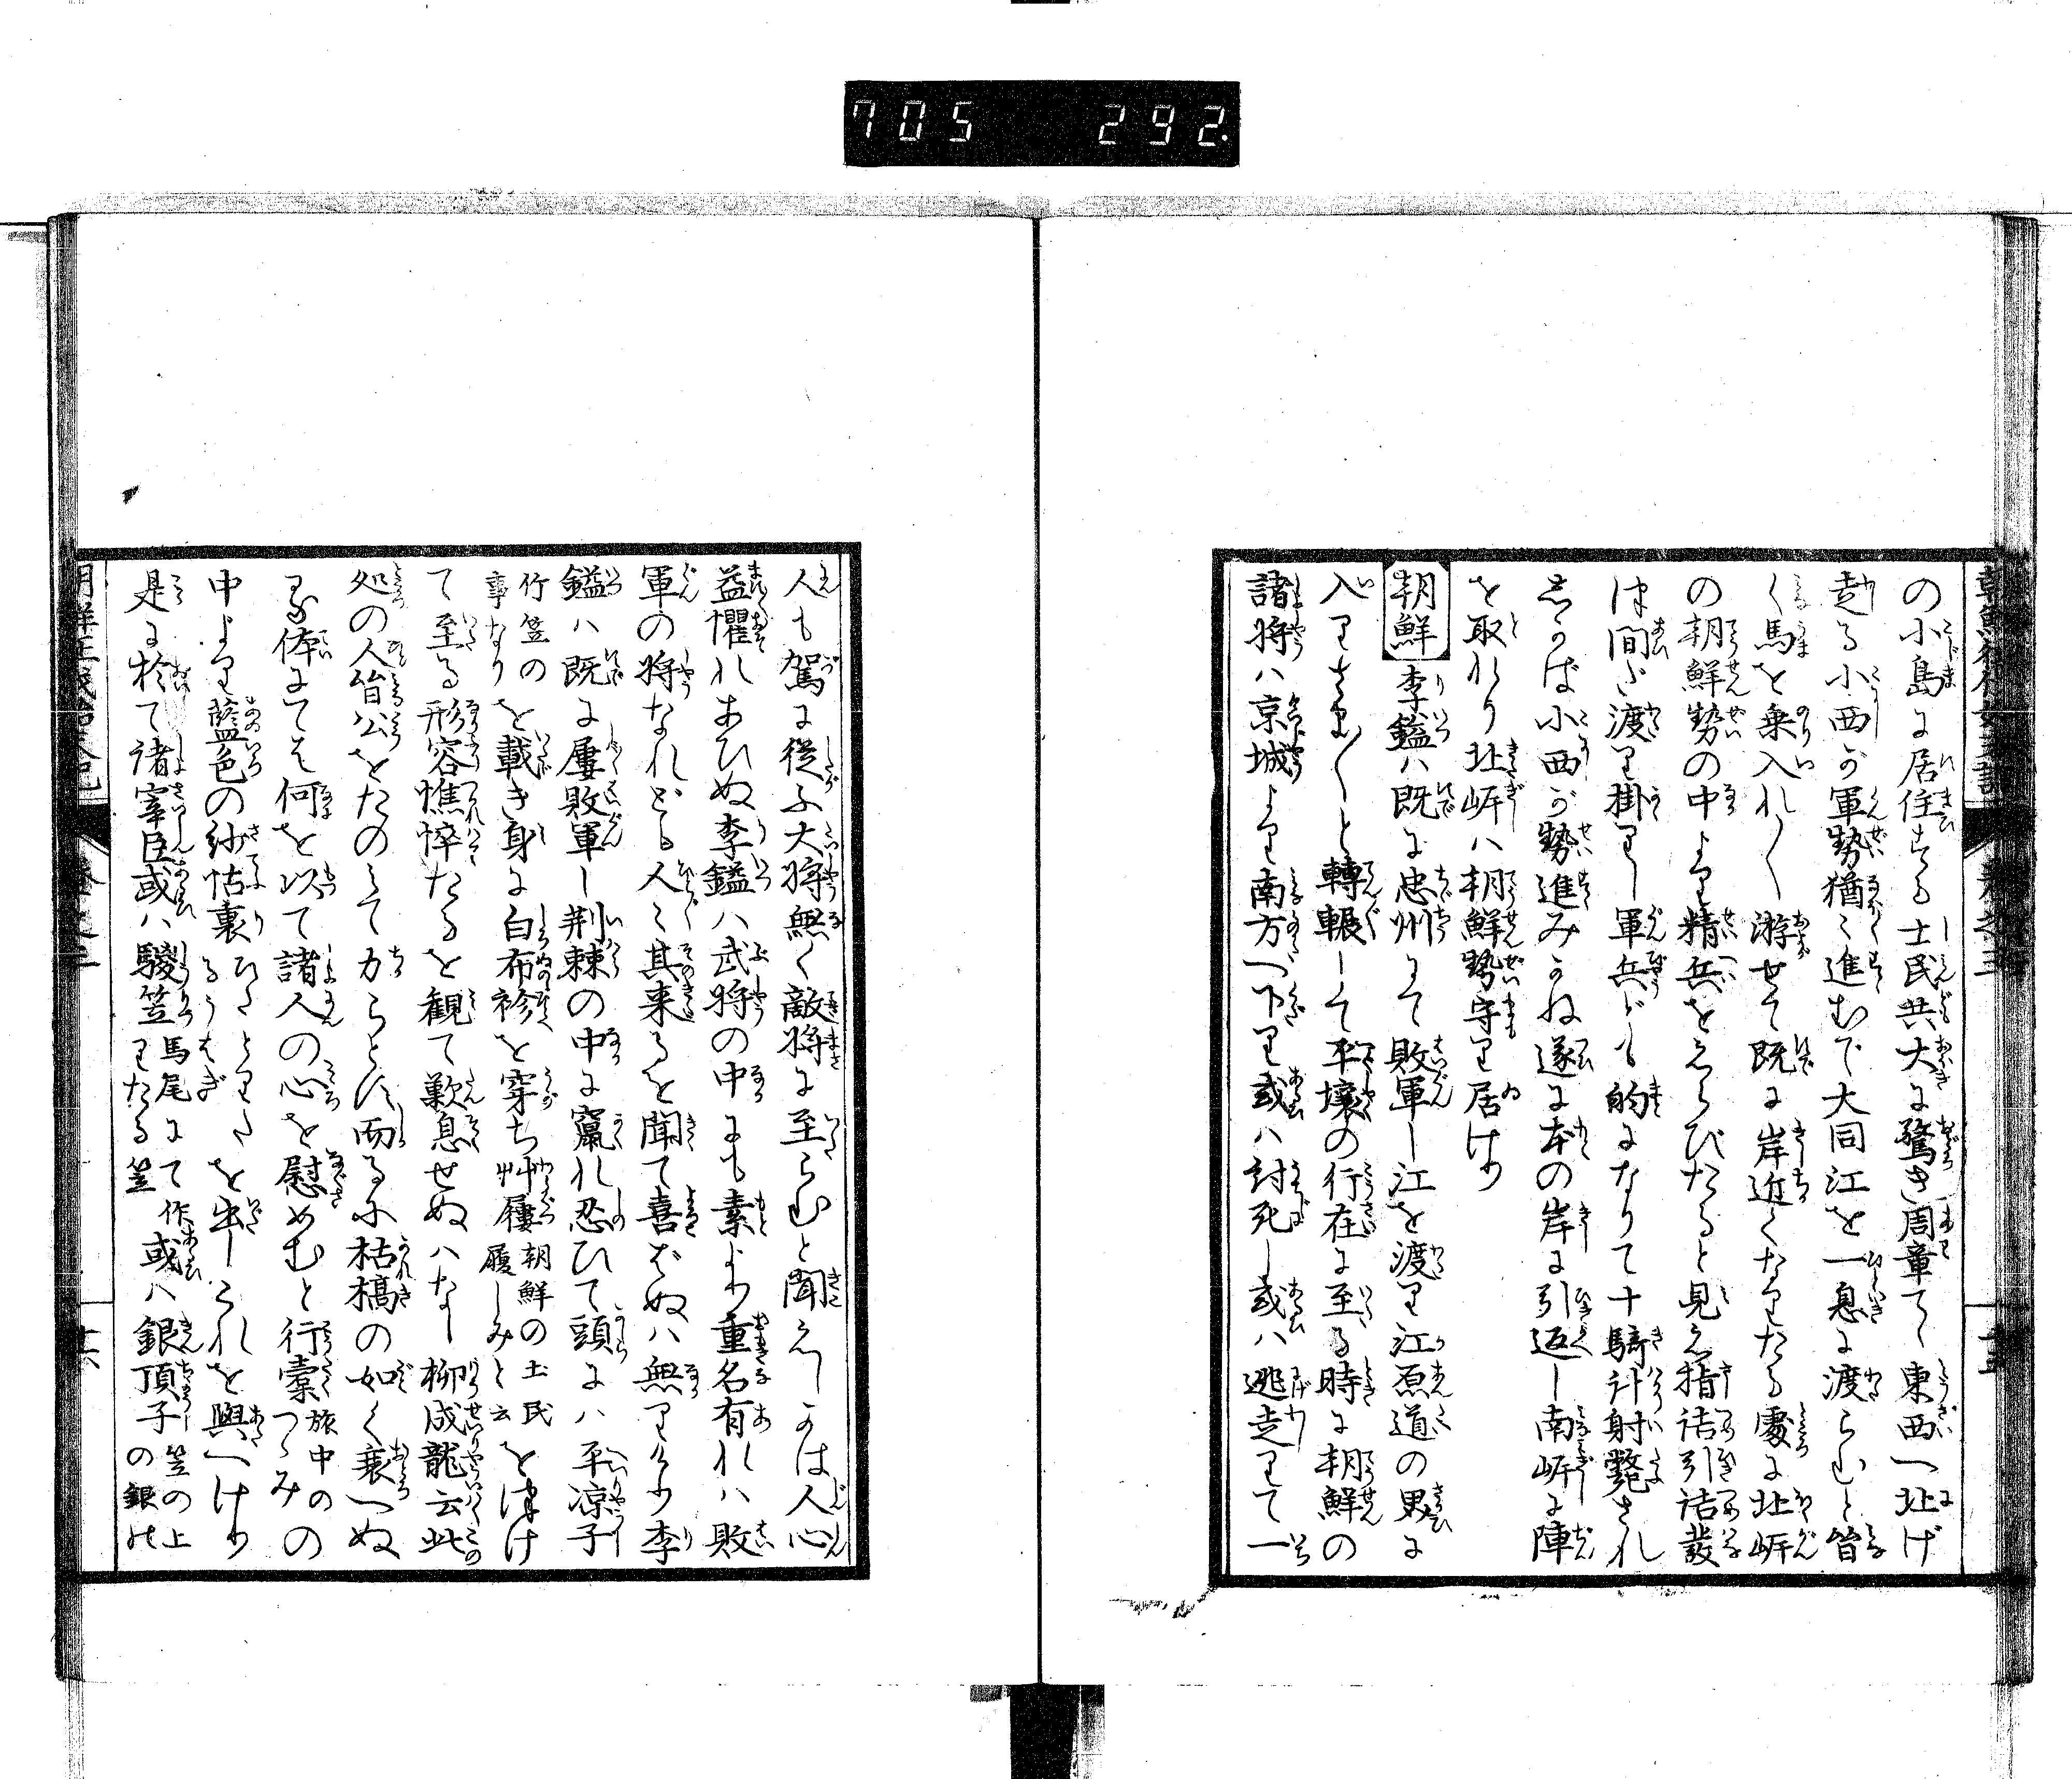 705 292.
の小島に居住する士民共大に驚き周章て東西へ北げ
走る小西が軍勢猶々進むで大同江を一息に渡らむと皆
く馬を乗入れ〳〵游せて既に岸近くなりたる処に北岸
の朝鮮勢の中より精兵をえらびたると見え指詰引詰發
は間に渡り掛りし軍兵ども的になりて十騎計射斃され
しかば小西が勢進みかね遂に本の岸に引返し南岸に陣
を取れり北岸ハ朝鮮勢守り居けり
朝鮮 李鎰ハ既に忠州にて敗軍し江を渡り江原道の界に
入りそれ〳〵と轉輾して平壌の行在に至る時に朝鮮の
諸将ハ京城より南方へ下り或ハ討死し或ハ逃走りて一
人も駕に従ふ大将無く敵将に至らむと聞えしかは人心
益懼れあひぬ李鎰ハ武将の中にも素より重名有れハ敗
軍の将なれども人々其来るを聞て喜ばぬハ無りけり李
鎰ハ既に屢敗軍し荆棘の中に竄れ忍ひて頭にハ平凉子
竹笠の事なりを載き身に白布衫を穿ち艸屨朝鮮の土民履しみと云を津け
て至る形容憔悴たるを観て歎息せぬハなし柳成龍云此
処の人皆公をたのみて力らとす而るに枯槁の如く衰へぬ
る体にてそ何を以て諸人の心を慰めむと行嚢旅中のつゝみの
中より藍色の紗怗裏ひたゝれるうはぎを出しこれを與へけり
是に於て諸宰臣或ハ騣笠馬尾にて作りたる笠或ハ銀頂子笠の上の銀の